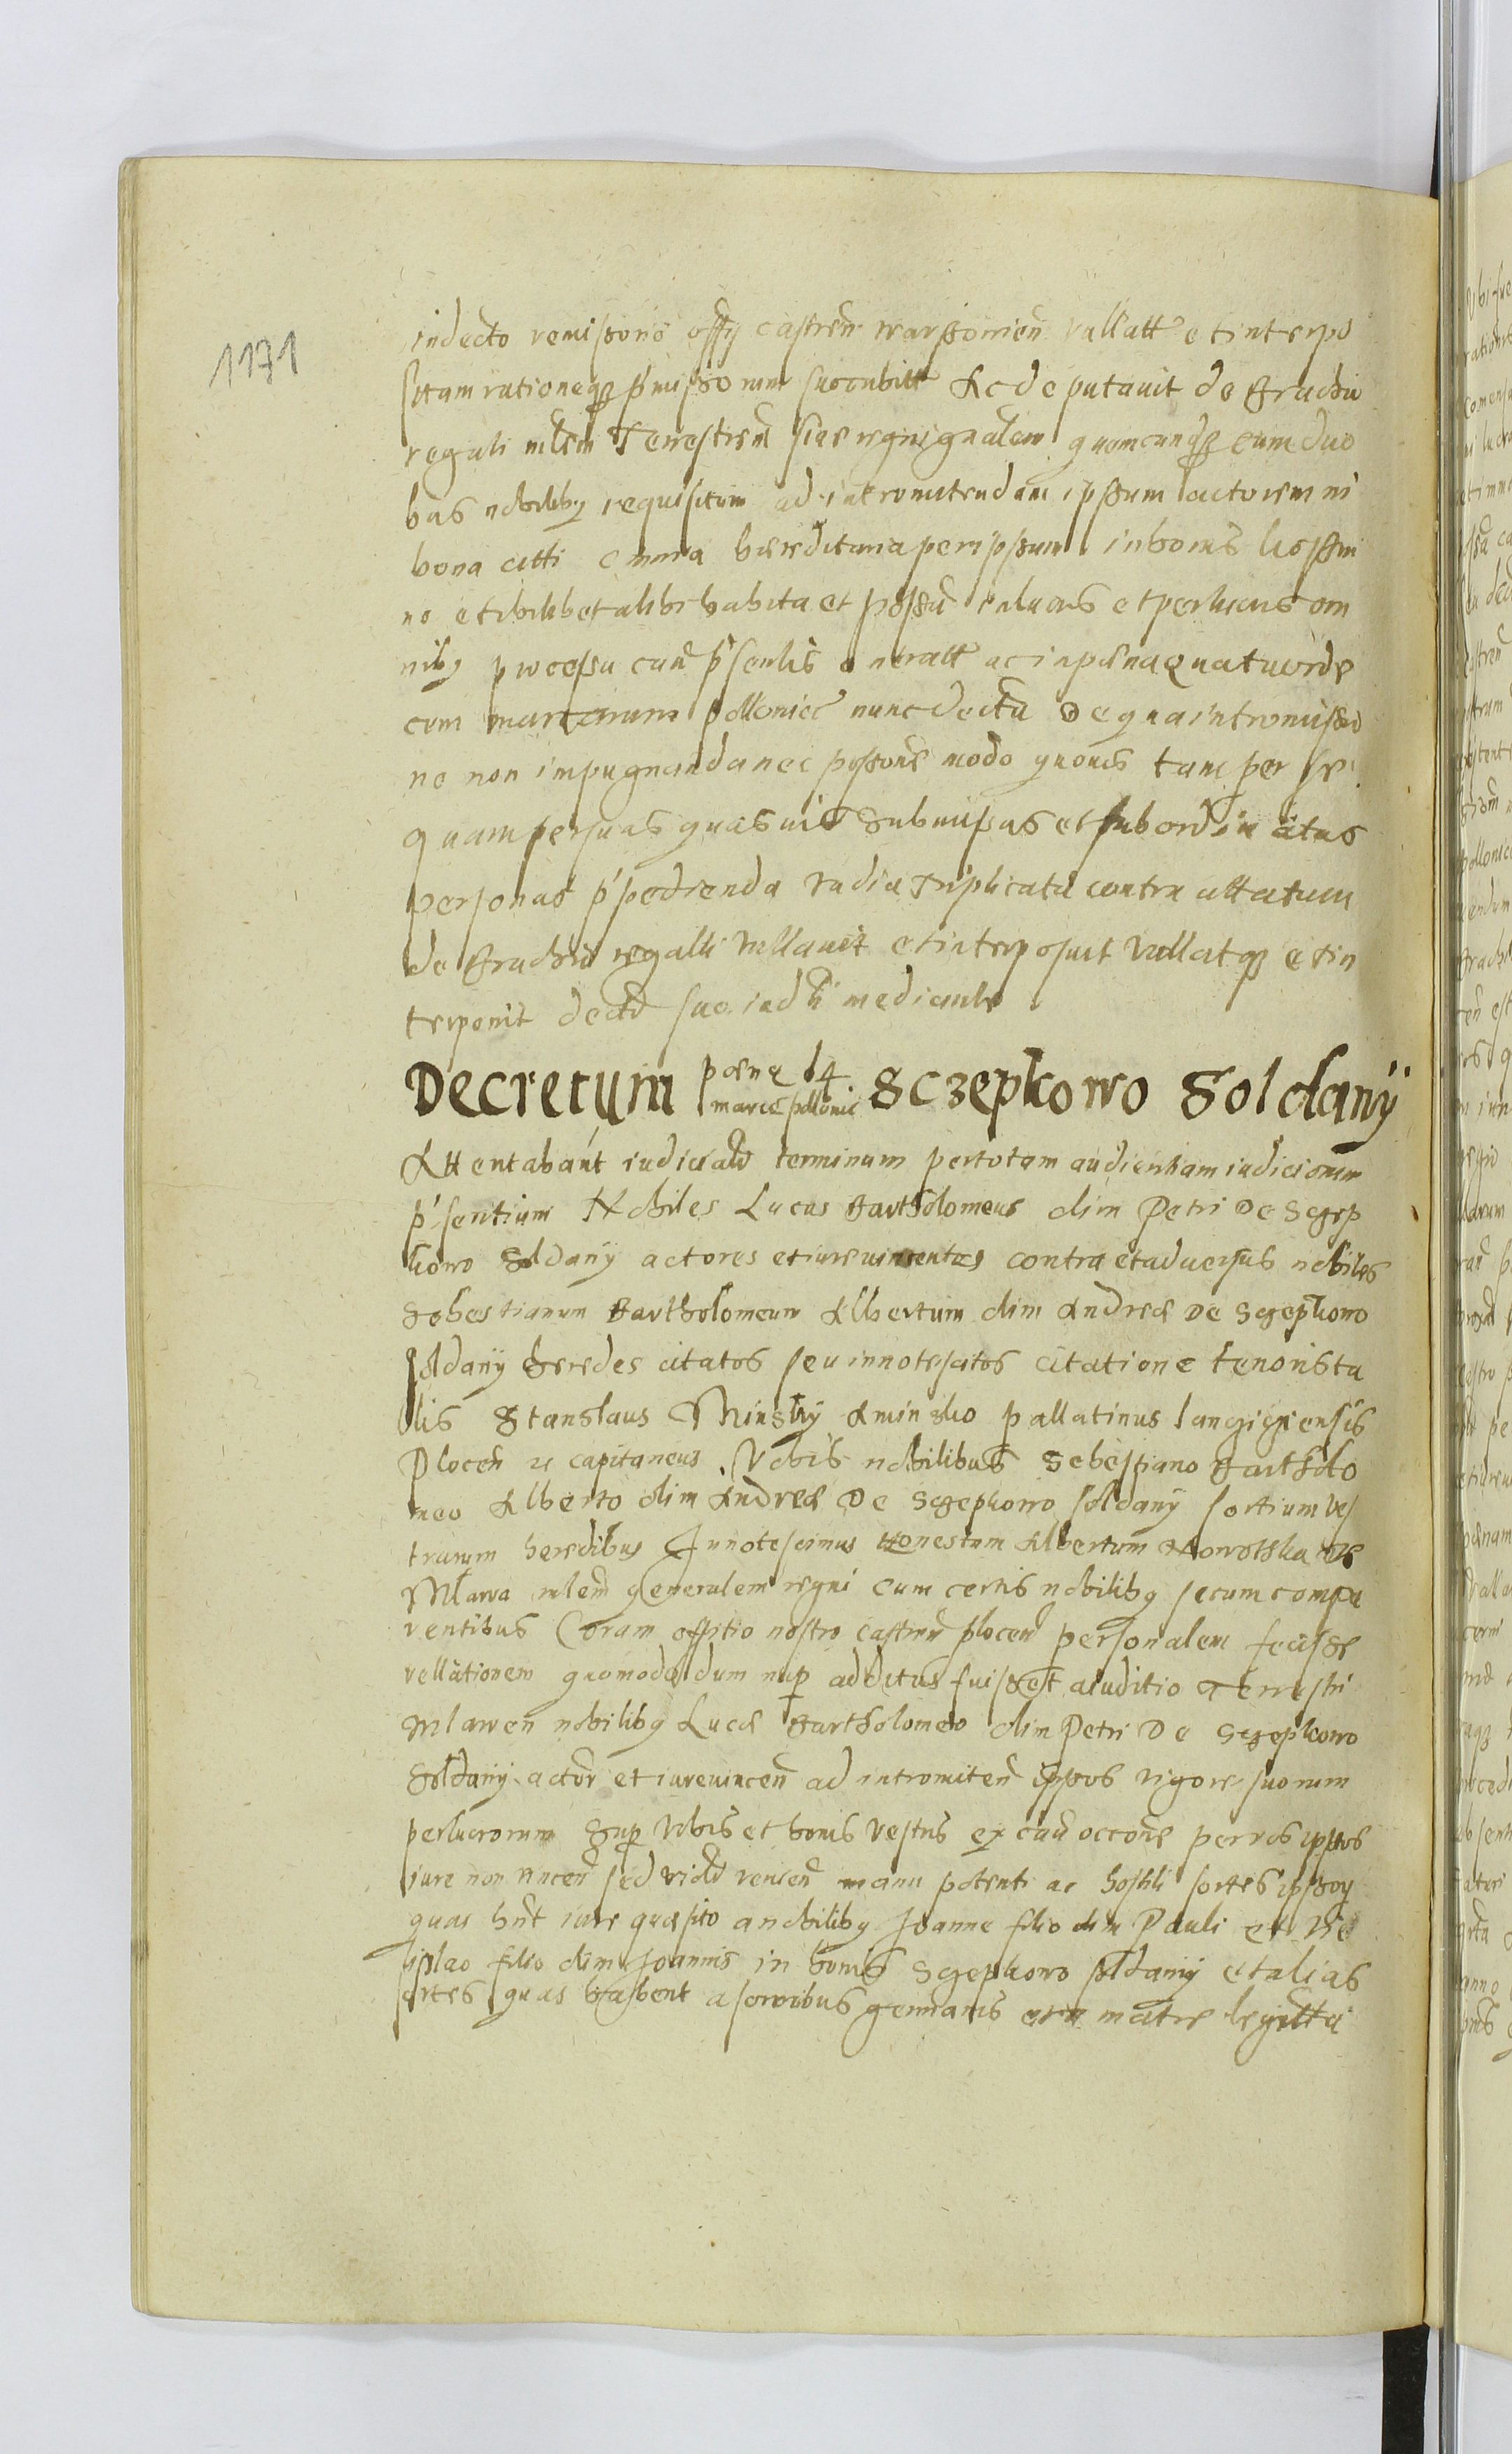 1171
indecto remissionis offy castren warssovien vallatt et interpo
sitam rationeqz p'missorum succubitt Ac deputavit de brachio
regali mlem Terrestrem sive regni gnalem quemcunqz cum duo
bus nobiliby requisitum ad intromittendam ipsum actorem in
bona citti omnia haereditaria per ipsum in bonis
no et ubilibet alibi habita et possa in lucris et perlucris om
niby processu cum p'sentis oneratt ac in paena quatuorde
cem marcarum pollonicc nunc decta De qua intromissio
ne non impugnanda nec possone modo quovis tam per se
quam per suas quasvis submissas et subordinatas
personas p'pedienda vadia triplicata contra attatum
de brachio regalli vallavit et interposuit vallatqz et in
terponit decto suo iudli mediante
Decretum paena 14 marc pollonic Sczepkowo Soldany
Attentabant iudicialr terminum per totam audientiam iudiciorum
p'sentium Nobiles Lucas Bartholomeus olim Petri De Sczep
kowo Soldany actores et iurevincentes contra et adversus nobiles
Sebestianum Bartholomeum Albertum olim Andreae De Sczepkowo
soldany heredes citatos seu innotescitos citatione tenoris ta
lis Stanslaus Minsky Aminsko pallatinus lancziciensis
Plocen zc capitaneus Vobis nobilibus Sebestiano Bartholo
meo Alberto olim Andreae De Sczepkowo soldany sortium ves
trarum heredibus Innotescimus Honestum Albertum Nowotska De
Mlawa mlem generalem regni cum certis nobiliby secum compa
rentibus Coram offitio nostro castrem plocen personalem fecisse
rellationem quomodo dum nup additus fuisset a iuditio Terrestri
Mlawen nobiliby Lucae Bartholomeo olim Petri De Sczepkowo
Soldany actor et iurevincen ad intromiten ipsos vigore suorum
perlucrorum sup vobis et bonis vestris ex caa occone per vos ipsos
iure non vincen sed violr reiicen manu potenti ac hostili sortes ipsory
quas hnt iure quaesito a nobiliby Joanne filio olim Pauli et
islao filio olim Joannis in bonis Sczepkowo soldany et alias
sortes quas habent a sororibus germanis matre legitta